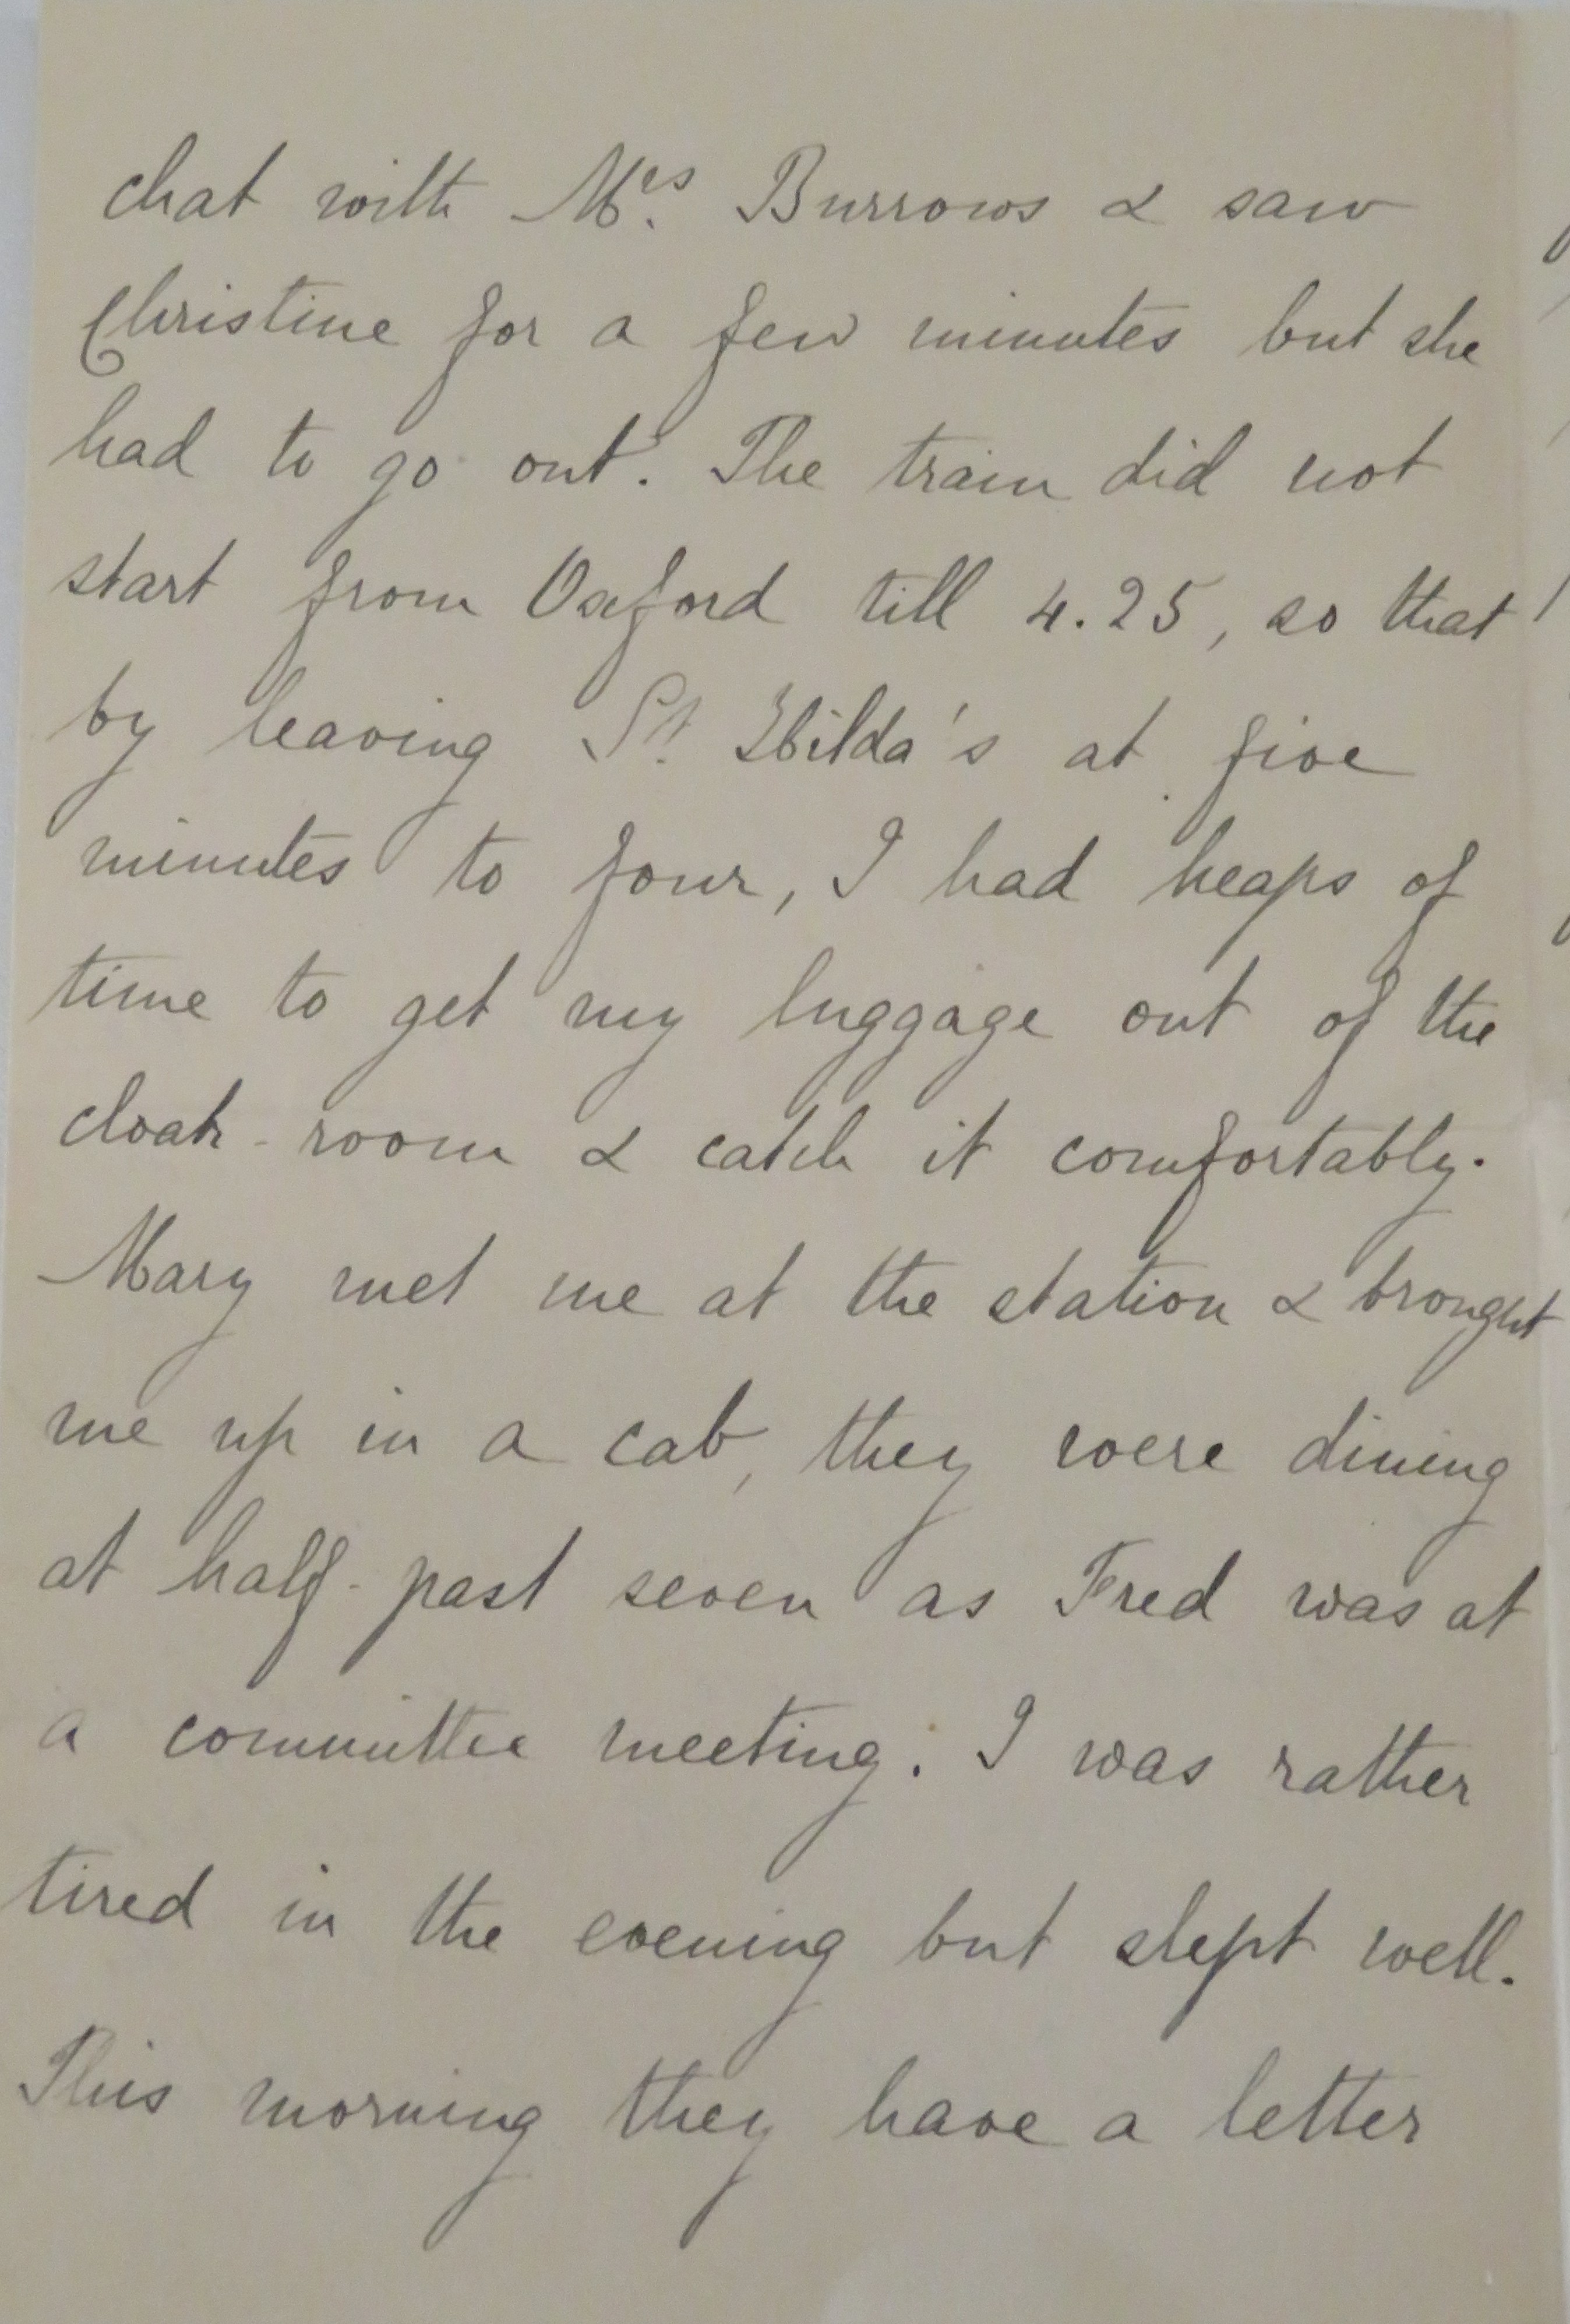 chat with Mrs. Burrows & saw
Christine for a few minutes but she
had to go out. The train did not
start from Oxford till 4.25, so that
by leaving St. Hilda's at five
minutes to four, I had heaps of
time to get my luggage out of the
cloak-room & catch it comfortably.
Mary met me at the station & brought
me up in a cab, they were dining
at half-past seven as Fred was at
a committee meeting. I was rather
tired in the evening but slept well.
This morning they have a letter